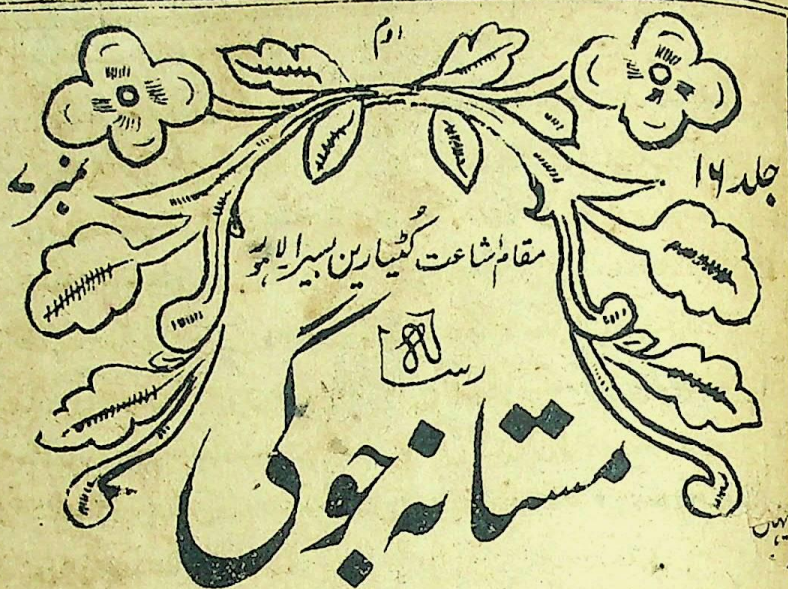 اوم
جلد ۱۶
نمبر ۷
مقام اشاعت کٹیا رین بسیرا لاہور
رسالہ
مستانہ جوگی